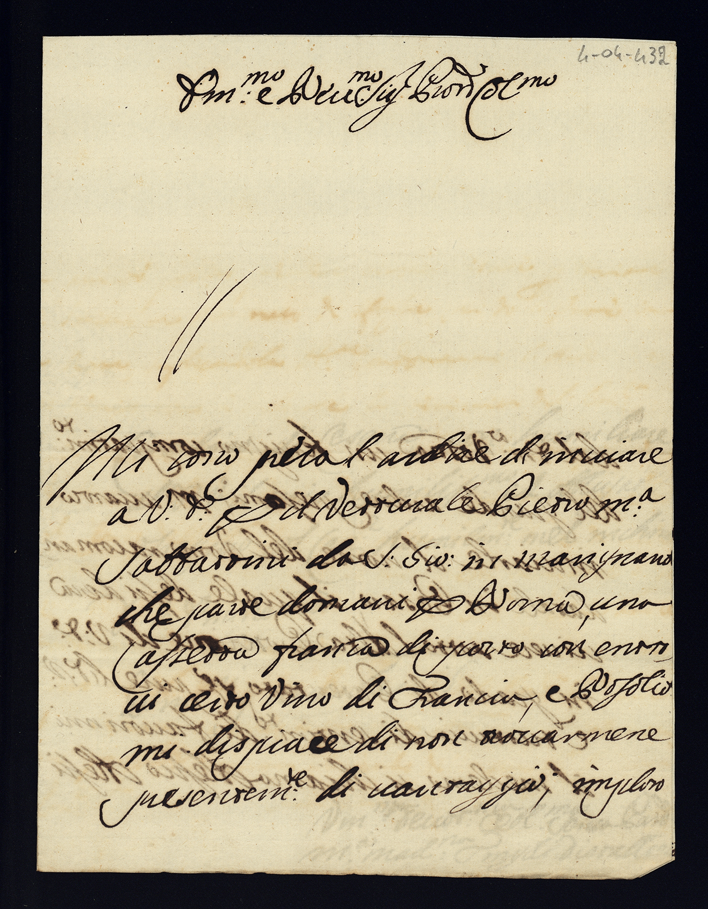 4-04-432
Ill.mo e Rev.mo Sig.r Pron Col.mo
Mi son preso l'ardire di inviare
a V. S. p il Vetturale Pietro M.a
Sabbattini da S: Gio: in Marignano
che parte domani p Roma, una
Cassetta franca di porto con entro
in certo Vino di Francia, e Rosolio
mi dispiace di non trovarmene
presentem.te di vantaggio; imploro